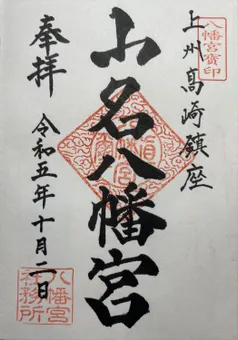 上州高崎鎮座
八幡宮寶印
山名八幡宮
奉拝
令和五年十月二日
八幡宮社務所